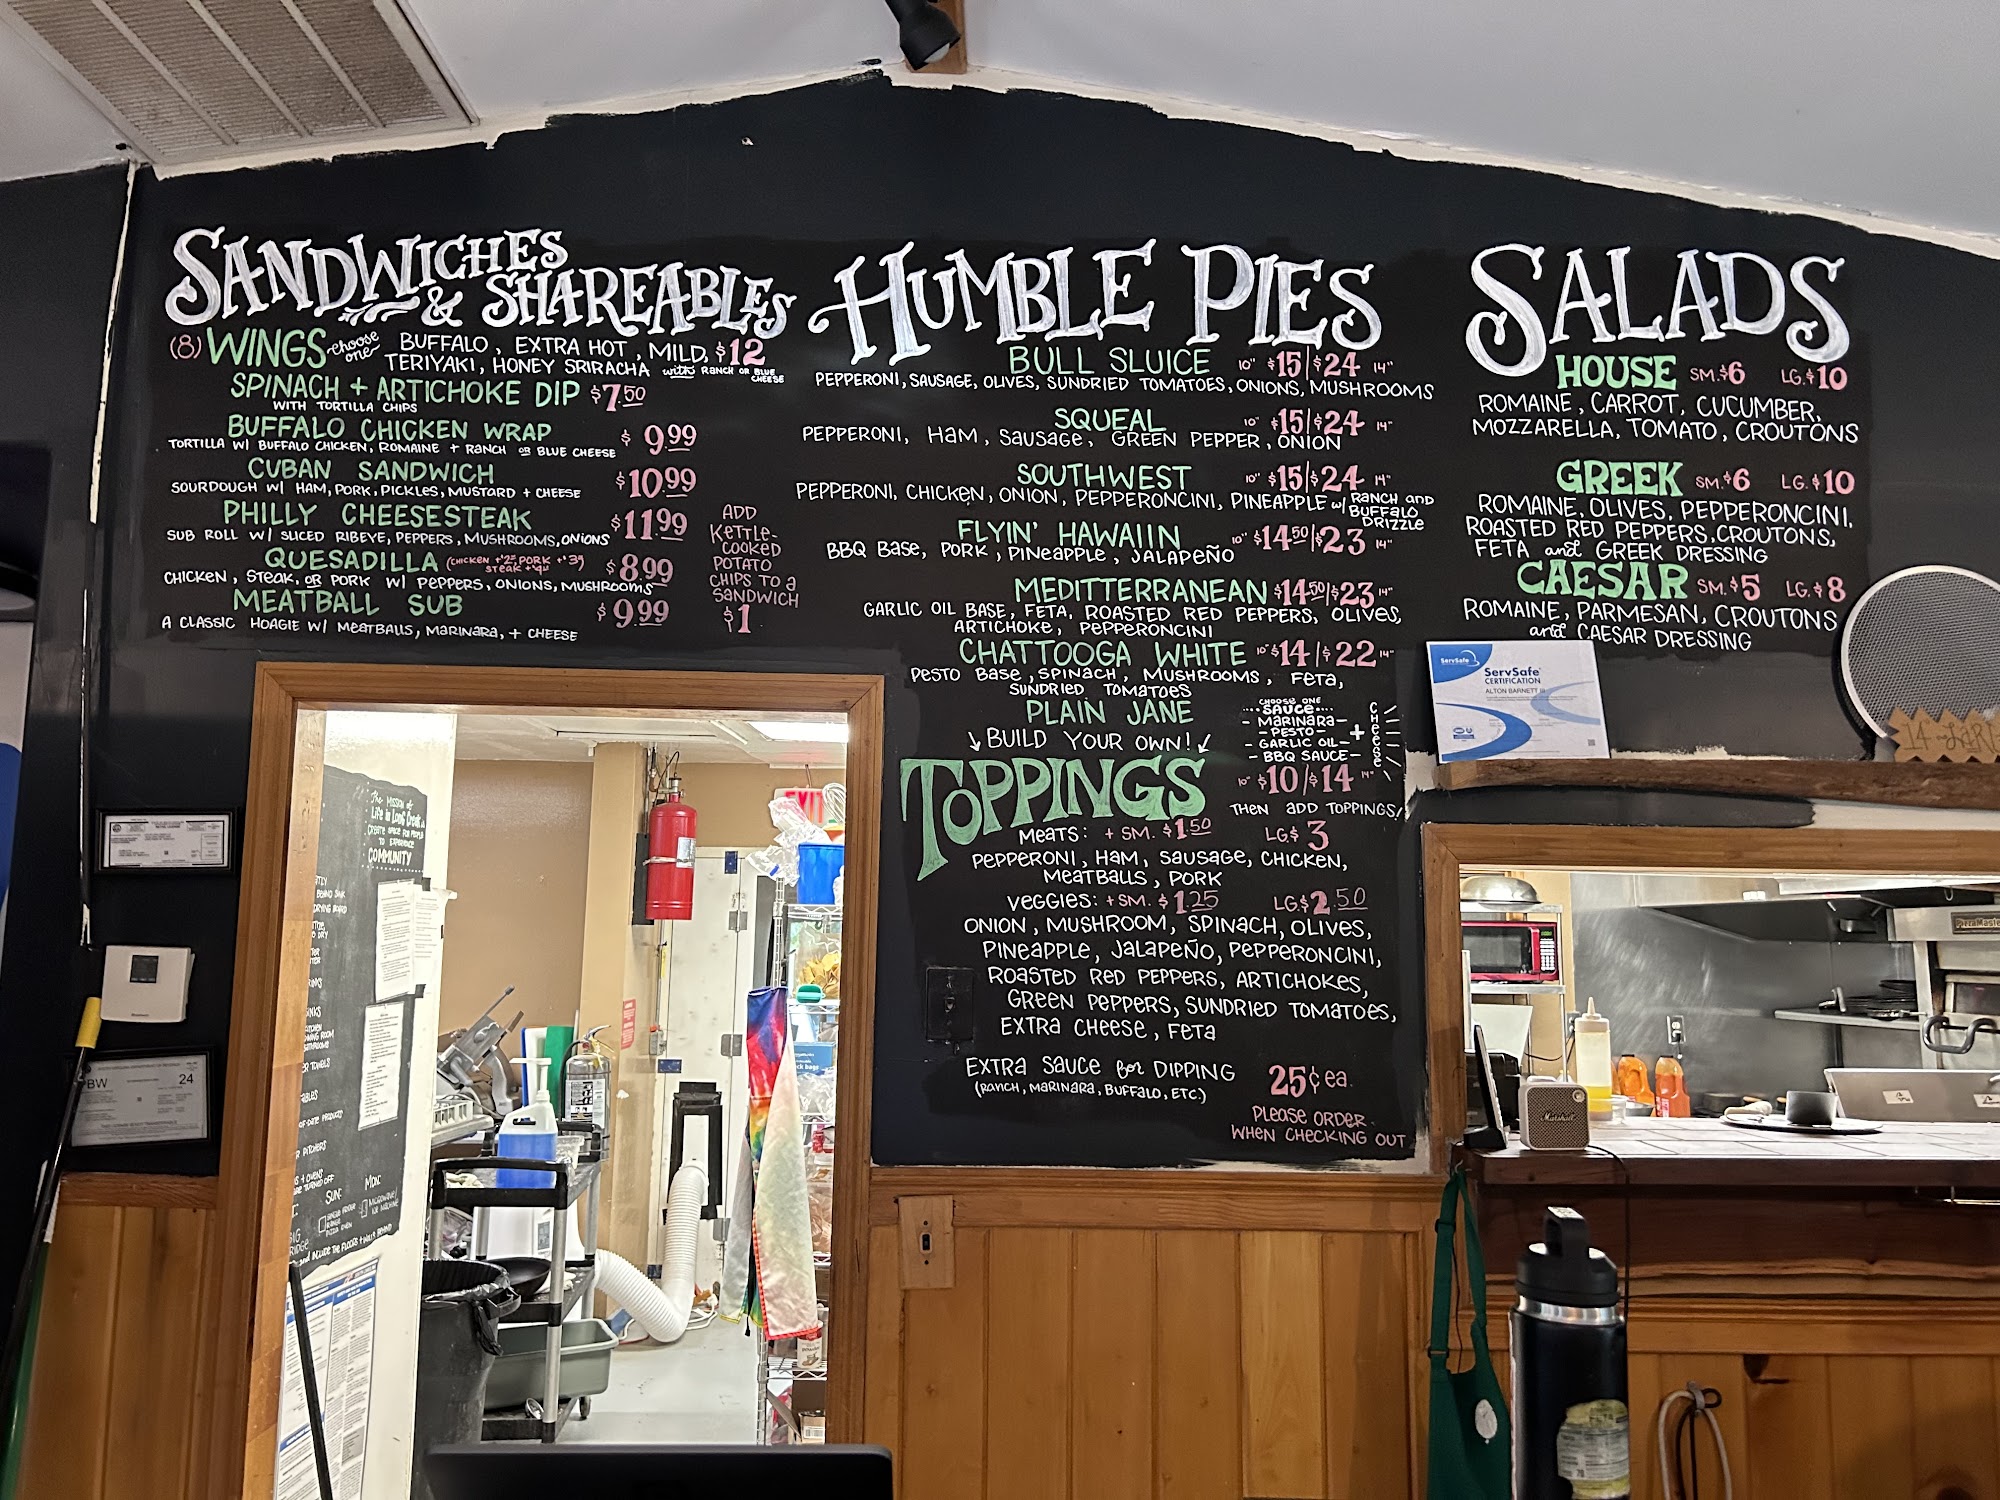 SANDWICHES
& SHAREABLES
(8) WINGS choose one BUFFALO, EXTRA HOT, MILD, $12
TERIYAKI, HONEY SRIRACHA with RANCH OR BLUE CHEESE
SPINACH + ARTICHOKE DIP $7.50
WITH TORTILLA CHIPS
BUFFALO CHICKEN WRAP $9.99
TORTILLA W/ BUFFALO CHICKEN, ROMAINE + RANCH OR BLUE CHEESE
CUBAN SANDWICH $10.99
SOURDOUGH W/ HAM, PORK, PICKLES, MUSTARD + CHEESE
PHILLY CHEESESTEAK $11.99
SUB ROLL W/ SLICED RIBEYE, PEPPERS, MUSHROOMS, ONIONS
QUESADILLA (CHICKEN +$2, PORK +$3, STEAK +$4) $8.99
CHICKEN, STEAK, OR PORK W/ PEPPERS, ONIONS, MUSHROOMS
MEATBALL SUB $9.99
A CLASSIC HOAGIE W/ MEATBALLS, MARINARA, + CHEESE
ADD
KETTLE-
COOKED
POTATO
CHIPS TO a
SANDWICH
$1
HUMBLE PIES
BULL SLUICE 10" $15/$24 14"
PEPPERONI, SAUSAGE, OLIVES, SUNDRIED TOMATOES, ONIONS, MUSHROOMS
SQUEAL 10" $15/$24 14"
PEPPERONI, HAM, SAUSAGE, GREEN PEPPER, ONION
SOUTHWEST 10" $15/$24 14"
PEPPERONI, CHICKEN, ONION, PEPPERONCINI, PINEAPPLE w/ RANCH AND
BUFFALO
DRIZZLE
FLYIN' HAWAIIN 10" $14.50/$23 14"
BBQ BASE, PORK, PINEAPPLE, JALAPEÑO
MEDITTERRANEAN $14.50/$23 14"
GARLIC OIL BASE, FETA, ROASTED RED PEPPERS, OLIVES,
ARTICHOKE, PEPPERONCINI
CHATTOOGA WHITE 10" $14/$22 14"
PESTO BASE, SPINACH, MUSHROOMS, FETA,
SUNDRIED TOMATOES
PLAIN JANE
BUILD YOUR OWN!
CHOOSE ONE
SAUCE
- MARINARA -
- PESTO -
- GARLIC OIL -
- BBQ SAUCE -
+ CHEESE
10" $10/$14 14"
THEN ADD TOPPINGS!
TOPPINGS
MEATS: + SM. $1.50 LG $3
PEPPERONI, HAM, SAUSAGE, CHICKEN,
MEATBALLS, PORK
VEGGIES: + SM. $1.25 LG. $2.50
ONION, MUSHROOM, SPINACH, OLIVES,
PINEAPPLE, JALAPEÑO, PEPPERONCINI,
ROASTED RED PEPPERS, ARTICHOKES,
GREEN PEPPERS, SUNDRIED TOMATOES,
EXTRA CHEESE, FETA
EXTRA SAUCE for DIPPING 25¢ ea.
(RANCH, MARINARA, BUFFALO, ETC.)
PLEASE ORDER
WHEN CHECKING OUT
SALADS
HOUSE SM. $6 LG. $10
ROMAINE, CARROT, CUCUMBER,
MOZZARELLA, TOMATO, CROUTONS
GREEK SM. $6 LG. $10
ROMAINE, OLIVES, PEPPERONCINI,
ROASTED RED PEPPERS, CROUTONS,
FETA and GREEK DRESSING
CAESAR SM. $5 LG. $8
ROMAINE, PARMESAN, CROUTONS
and CAESAR DRESSING
ServSafe
ServSafe
CERTIFICATION
ALTON BARNETT III
PizzaMaster
Marshall
PBW 24
The MISSION of
Life is Good
CREATE SPACE FOR PEOPLE
TO EXPERIENCE
COMMUNITY
BEHIND SINK
DRYING BOARD
OF DATE PRODUCTS
PITCHERS
TURNED OFF
SUN: MON: